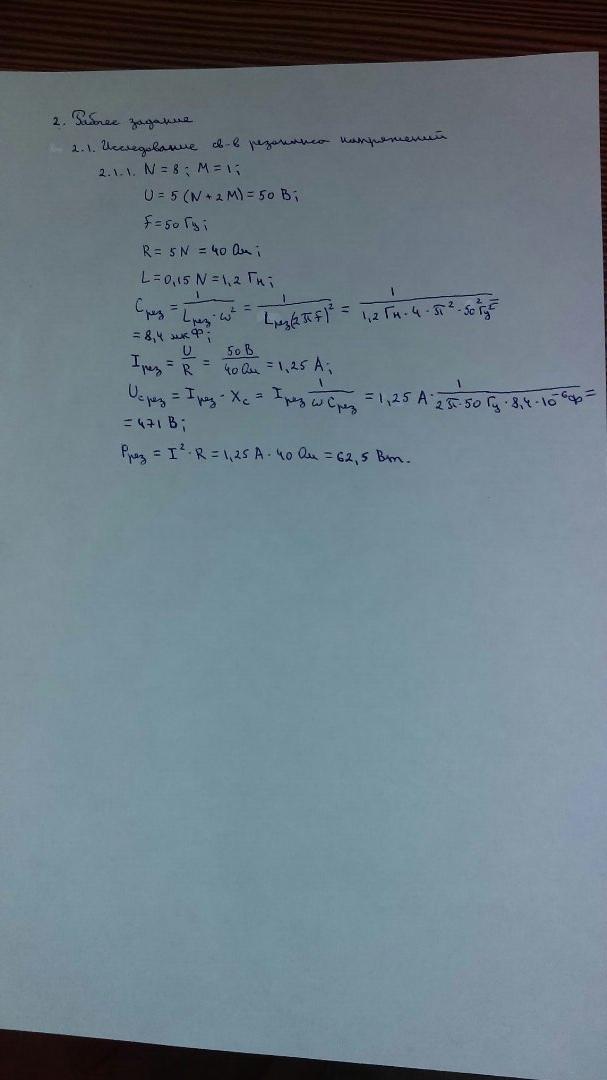 2. Рабочее задание
2.1. Исследование св-в резонанса напряжений
2.1.1. N = 8; M = 1;
U = 5 (N + 2M) = 50 В;
f = 50 Гц;
R = 5N = 40 Ом;
L = 0,15 N = 1,2 Гн;
Cрез = 1/(Lрез · ω²) = 1/(Lрез(2πf)²) = 1/(1,2 Гн · 4 · π² · 50² Гц²) =
= 8,4 мкФ;
Iрез = U/R = 50 В/40 Ом = 1,25 А;
UCрез = Iрез · XC = Iрез 1/(ωCрез) = 1,25 А · 1/(2π · 50 Гц · 8,4 · 10⁻⁶ Ф) =
= 471 В;
Pрез = I² · R = 1,25 А · 40 Ом = 62,5 Вт.